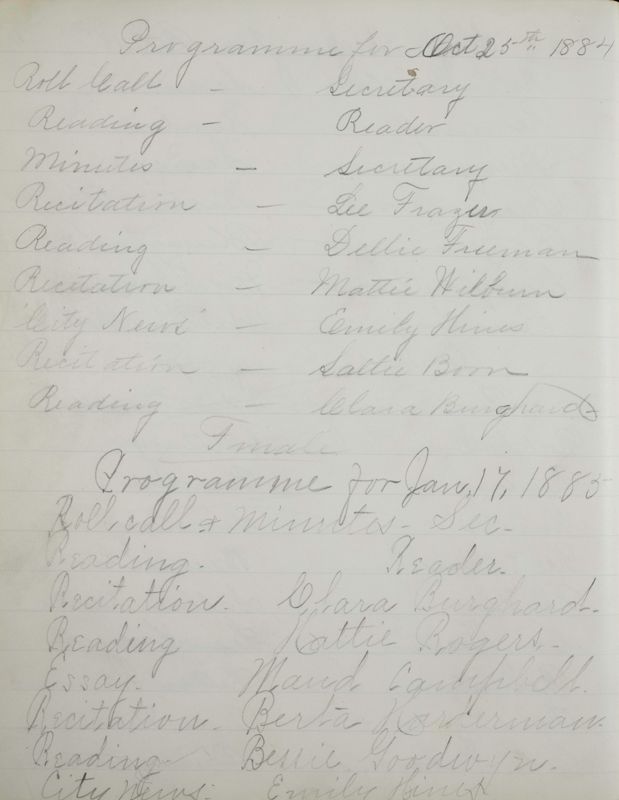 Programme for Oct 25th 1884
Roll Call - Secretary
Reading - Reader
Minutes - Secretary
Recitation - Lee Frazier
Reading - Dellie Freeman
Recitation - Mattie Wilburn
"City News" - Emily Hines
Recitation - Sallie Boon
Reading - Clara Burghard
Finale
Programme for Jan, 17, 1885
Roll call & Minutes - Sec-
Reading. Reader.
Recitation. Clara Burghard.
Reading Hattie Rogers.
Essay. Maud Campbell.
Recitation. Berta
Reading Bessie Goodwyn.
City News. Emily Hines